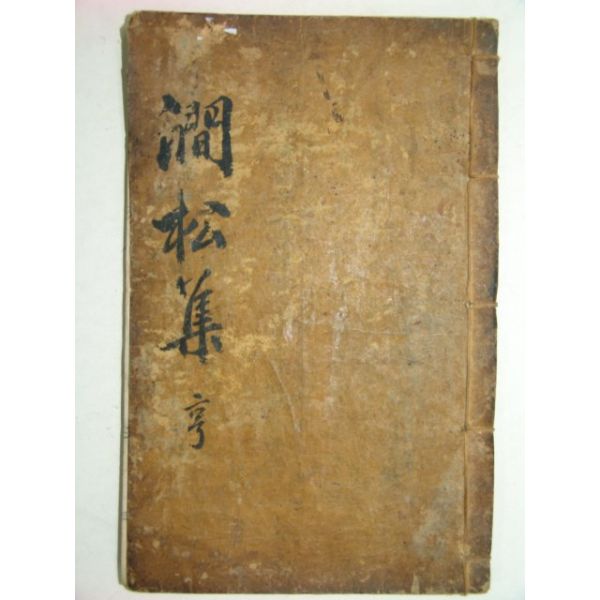 澗松集 亨